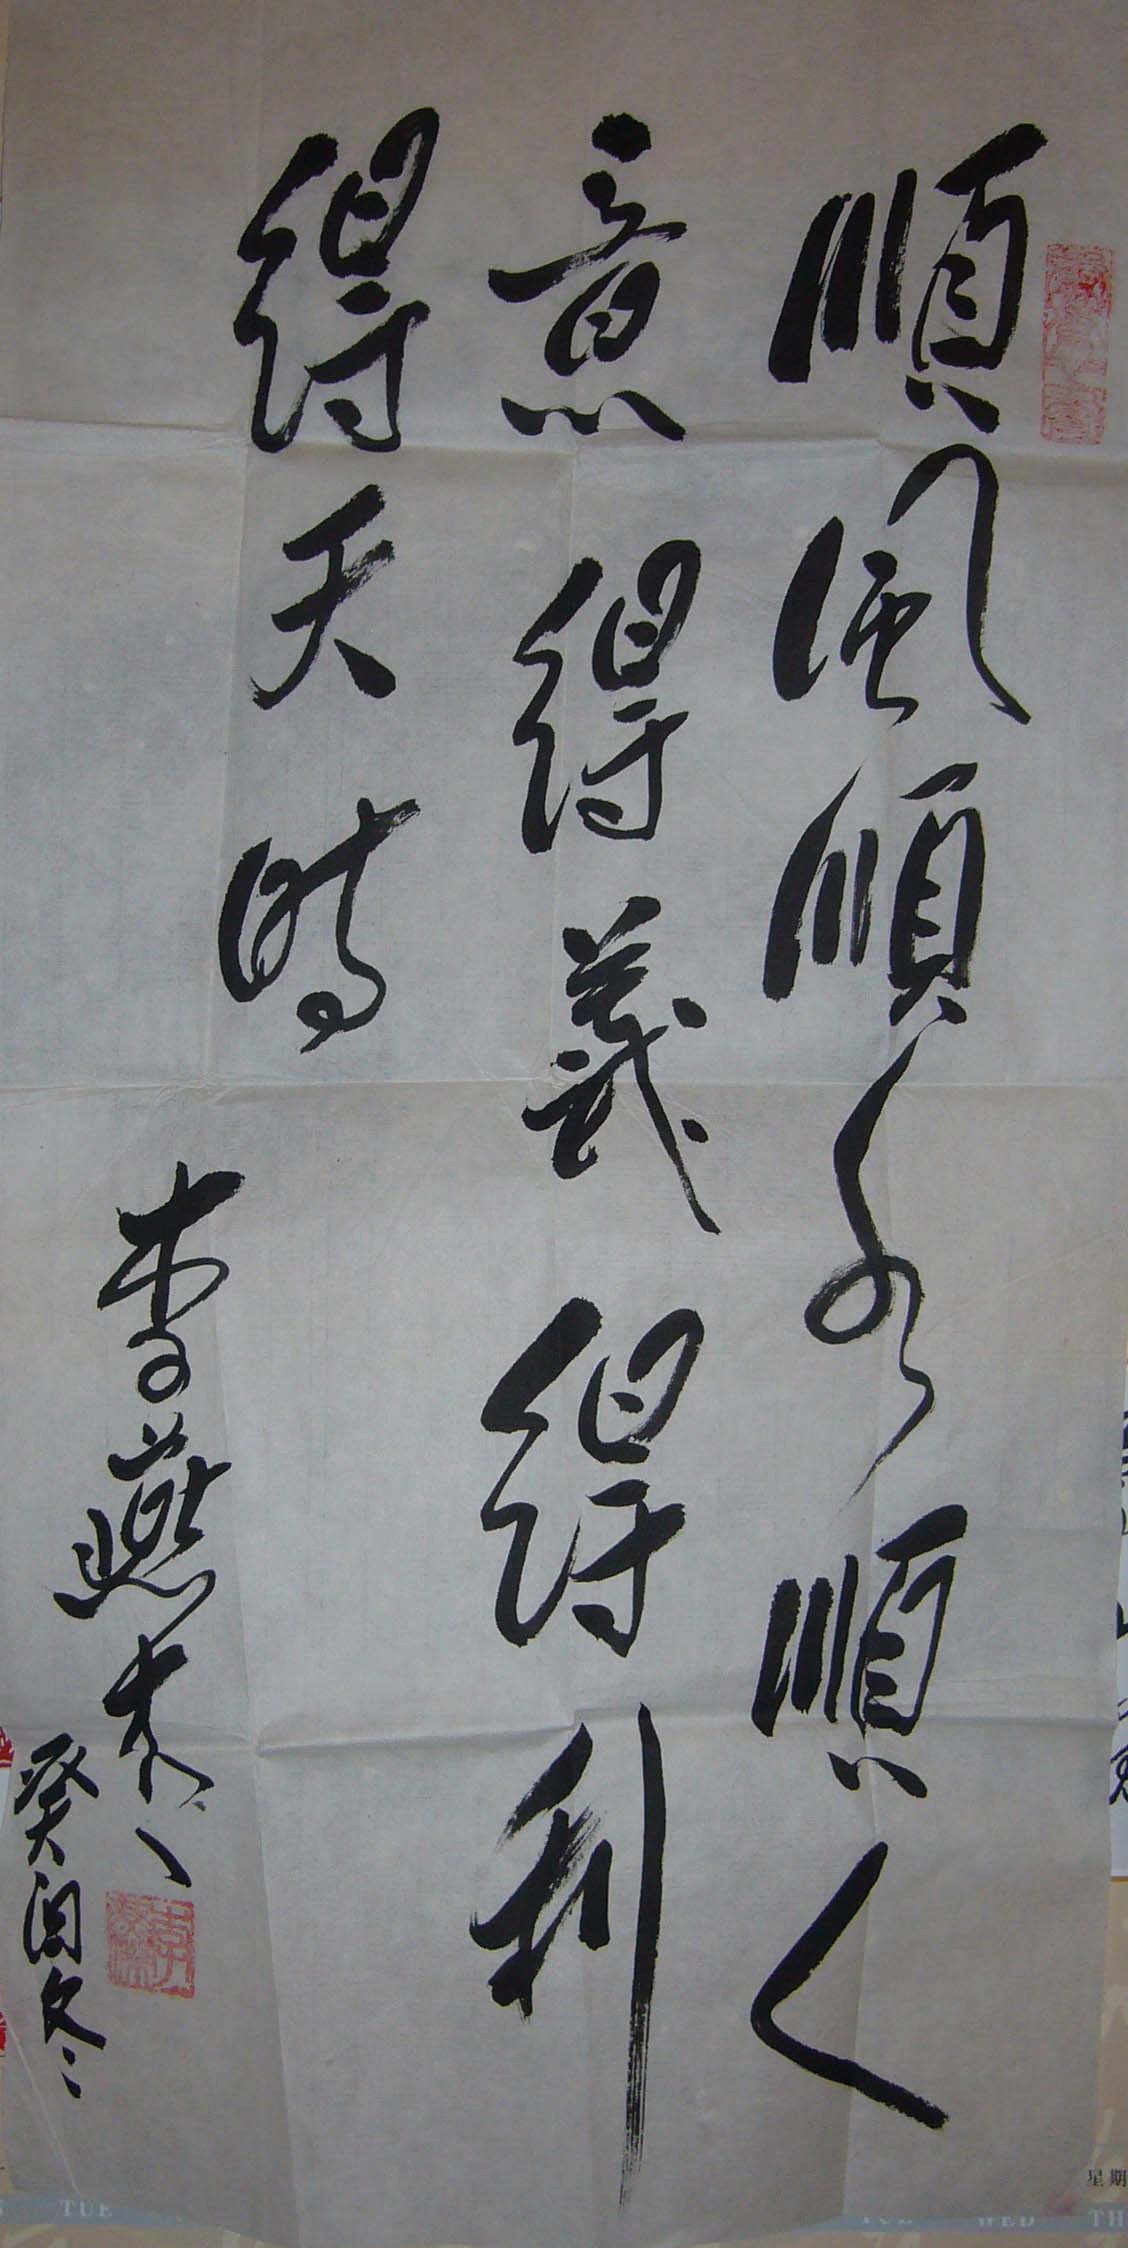 順風順水順人
意得義得利
得天時
李燕杰
癸酉冬
星期
TUE
TUE
WED
TH